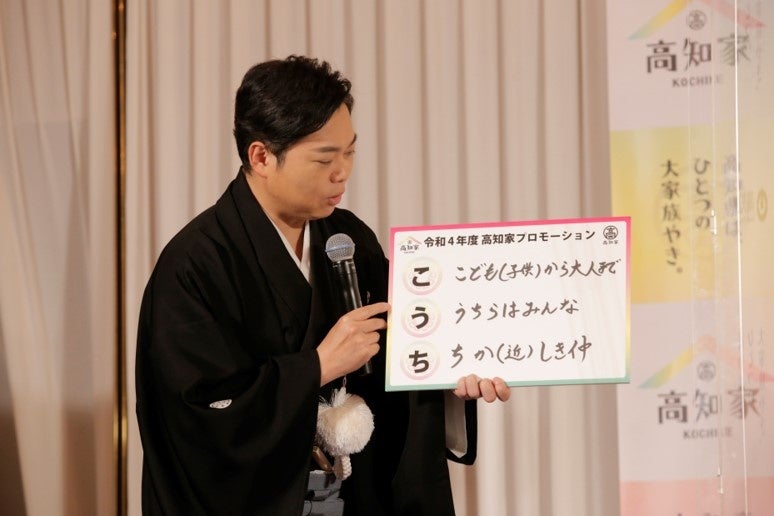 高知家
KOCHIKE
ひとつの
大家族やき。
高知家 令和4年度 高知家プロモーション 高知家
こ こども(子供)から大人まで
う うちらはみんな
ち ちか(近)しき仲
高知家
KOCHIKE